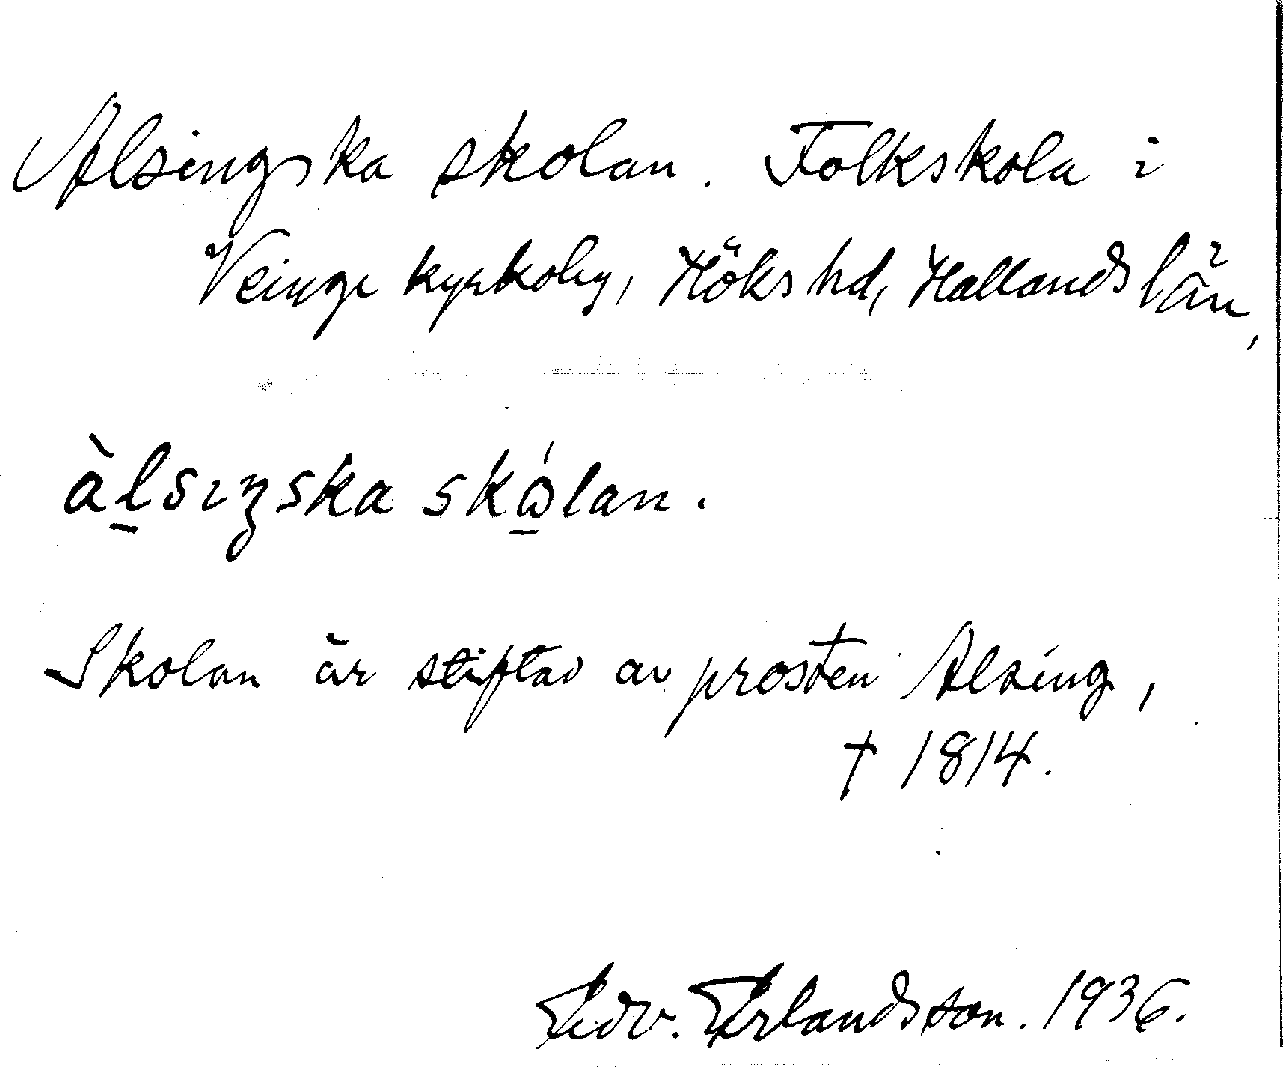 Alsingska skolan. Folkskola i
Veinge kyrkoby, Höks hd, Hallands län,
àl̲sıŋska skó̲lan.
Skolan är stiftad av prosten Alsing,
† 1814.
Edv. Erlandsson. 1936.